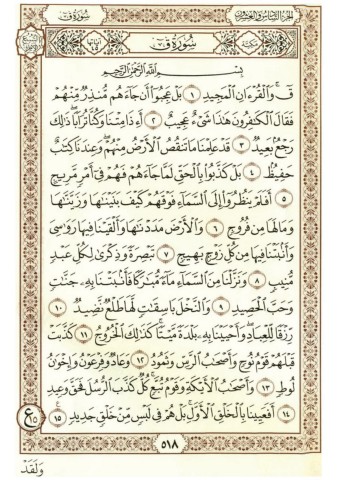 الجزء السادس والعشرون سورة ق
سورة ق
مكية
بسم الله الرحمن الرحيم
قٓ وَالْقُرْءَانِ الْمَجِيدِ ١ بَلْ عَجِبُوا أَن جَاءَهُم مُّنذِرٌ مِّنْهُمْ
فَقَالَ الْكَافِرُونَ هَٰذَا شَىْءٌ عَجِيبٌ ٢ أَءِذَا مِتْنَا وَكُنَّا تُرَابًا ذَٰلِكَ
رَجْعٌ بَعِيدٌ ٣ قَدْ عَلِمْنَا مَا تَنقُصُ الْأَرْضُ مِنْهُمْ وَعِندَنَا كِتَابٌ
حَفِيظٌ ٤ بَلْ كَذَّبُوا بِالْحَقِّ لَمَّا جَاءَهُمْ فَهُمْ فِى أَمْرٍ مَّرِيجٍ
٥ أَفَلَمْ يَنظُرُوا إِلَى السَّمَاءِ فَوْقَهُمْ كَيْفَ بَنَيْنَاهَا وَزَيَّنَّاهَا
وَمَا لَهَا مِن فُرُوجٍ ٦ وَالْأَرْضَ مَدَدْنَاهَا وَأَلْقَيْنَا فِيهَا رَوَاسِىَ
وَأَنبَتْنَا فِيهَا مِن كُلِّ زَوْجٍ بَهِيجٍ ٧ تَبْصِرَةً وَذِكْرَىٰ لِكُلِّ عَبْدٍ
مُّنِيبٍ ٨ وَنَزَّلْنَا مِنَ السَّمَاءِ مَاءً مُّبَارَكًا فَأَنبَتْنَا بِهِ جَنَّاتٍ
وَحَبَّ الْحَصِيدِ ٩ وَالنَّخْلَ بَاسِقَاتٍ لَّهَا طَلْعٌ نَّضِيدٌ ١٠
رِّزْقًا لِّلْعِبَادِ وَأَحْيَيْنَا بِهِ بَلْدَةً مَّيْتًا كَذَٰلِكَ الْخُرُوجُ ١١ كَذَّبَتْ
قَبْلَهُمْ قَوْمُ نُوحٍ وَأَصْحَابُ الرَّسِّ وَثَمُودُ ١٢ وَعَادٌ وَفِرْعَوْنُ وَإِخْوَانُ
لُوطٍ ١٣ وَأَصْحَابُ الْأَيْكَةِ وَقَوْمُ تُبَّعٍ كُلٌّ كَذَّبَ الرُّسُلَ فَحَقَّ وَعِيدِ
١٤ أَفَعَيِينَا بِالْخَلْقِ الْأَوَّلِ بَلْ هُمْ فِى لَبْسٍ مِّنْ خَلْقٍ جَدِيدٍ ١٥
٥١٨
وَلَقَدْ